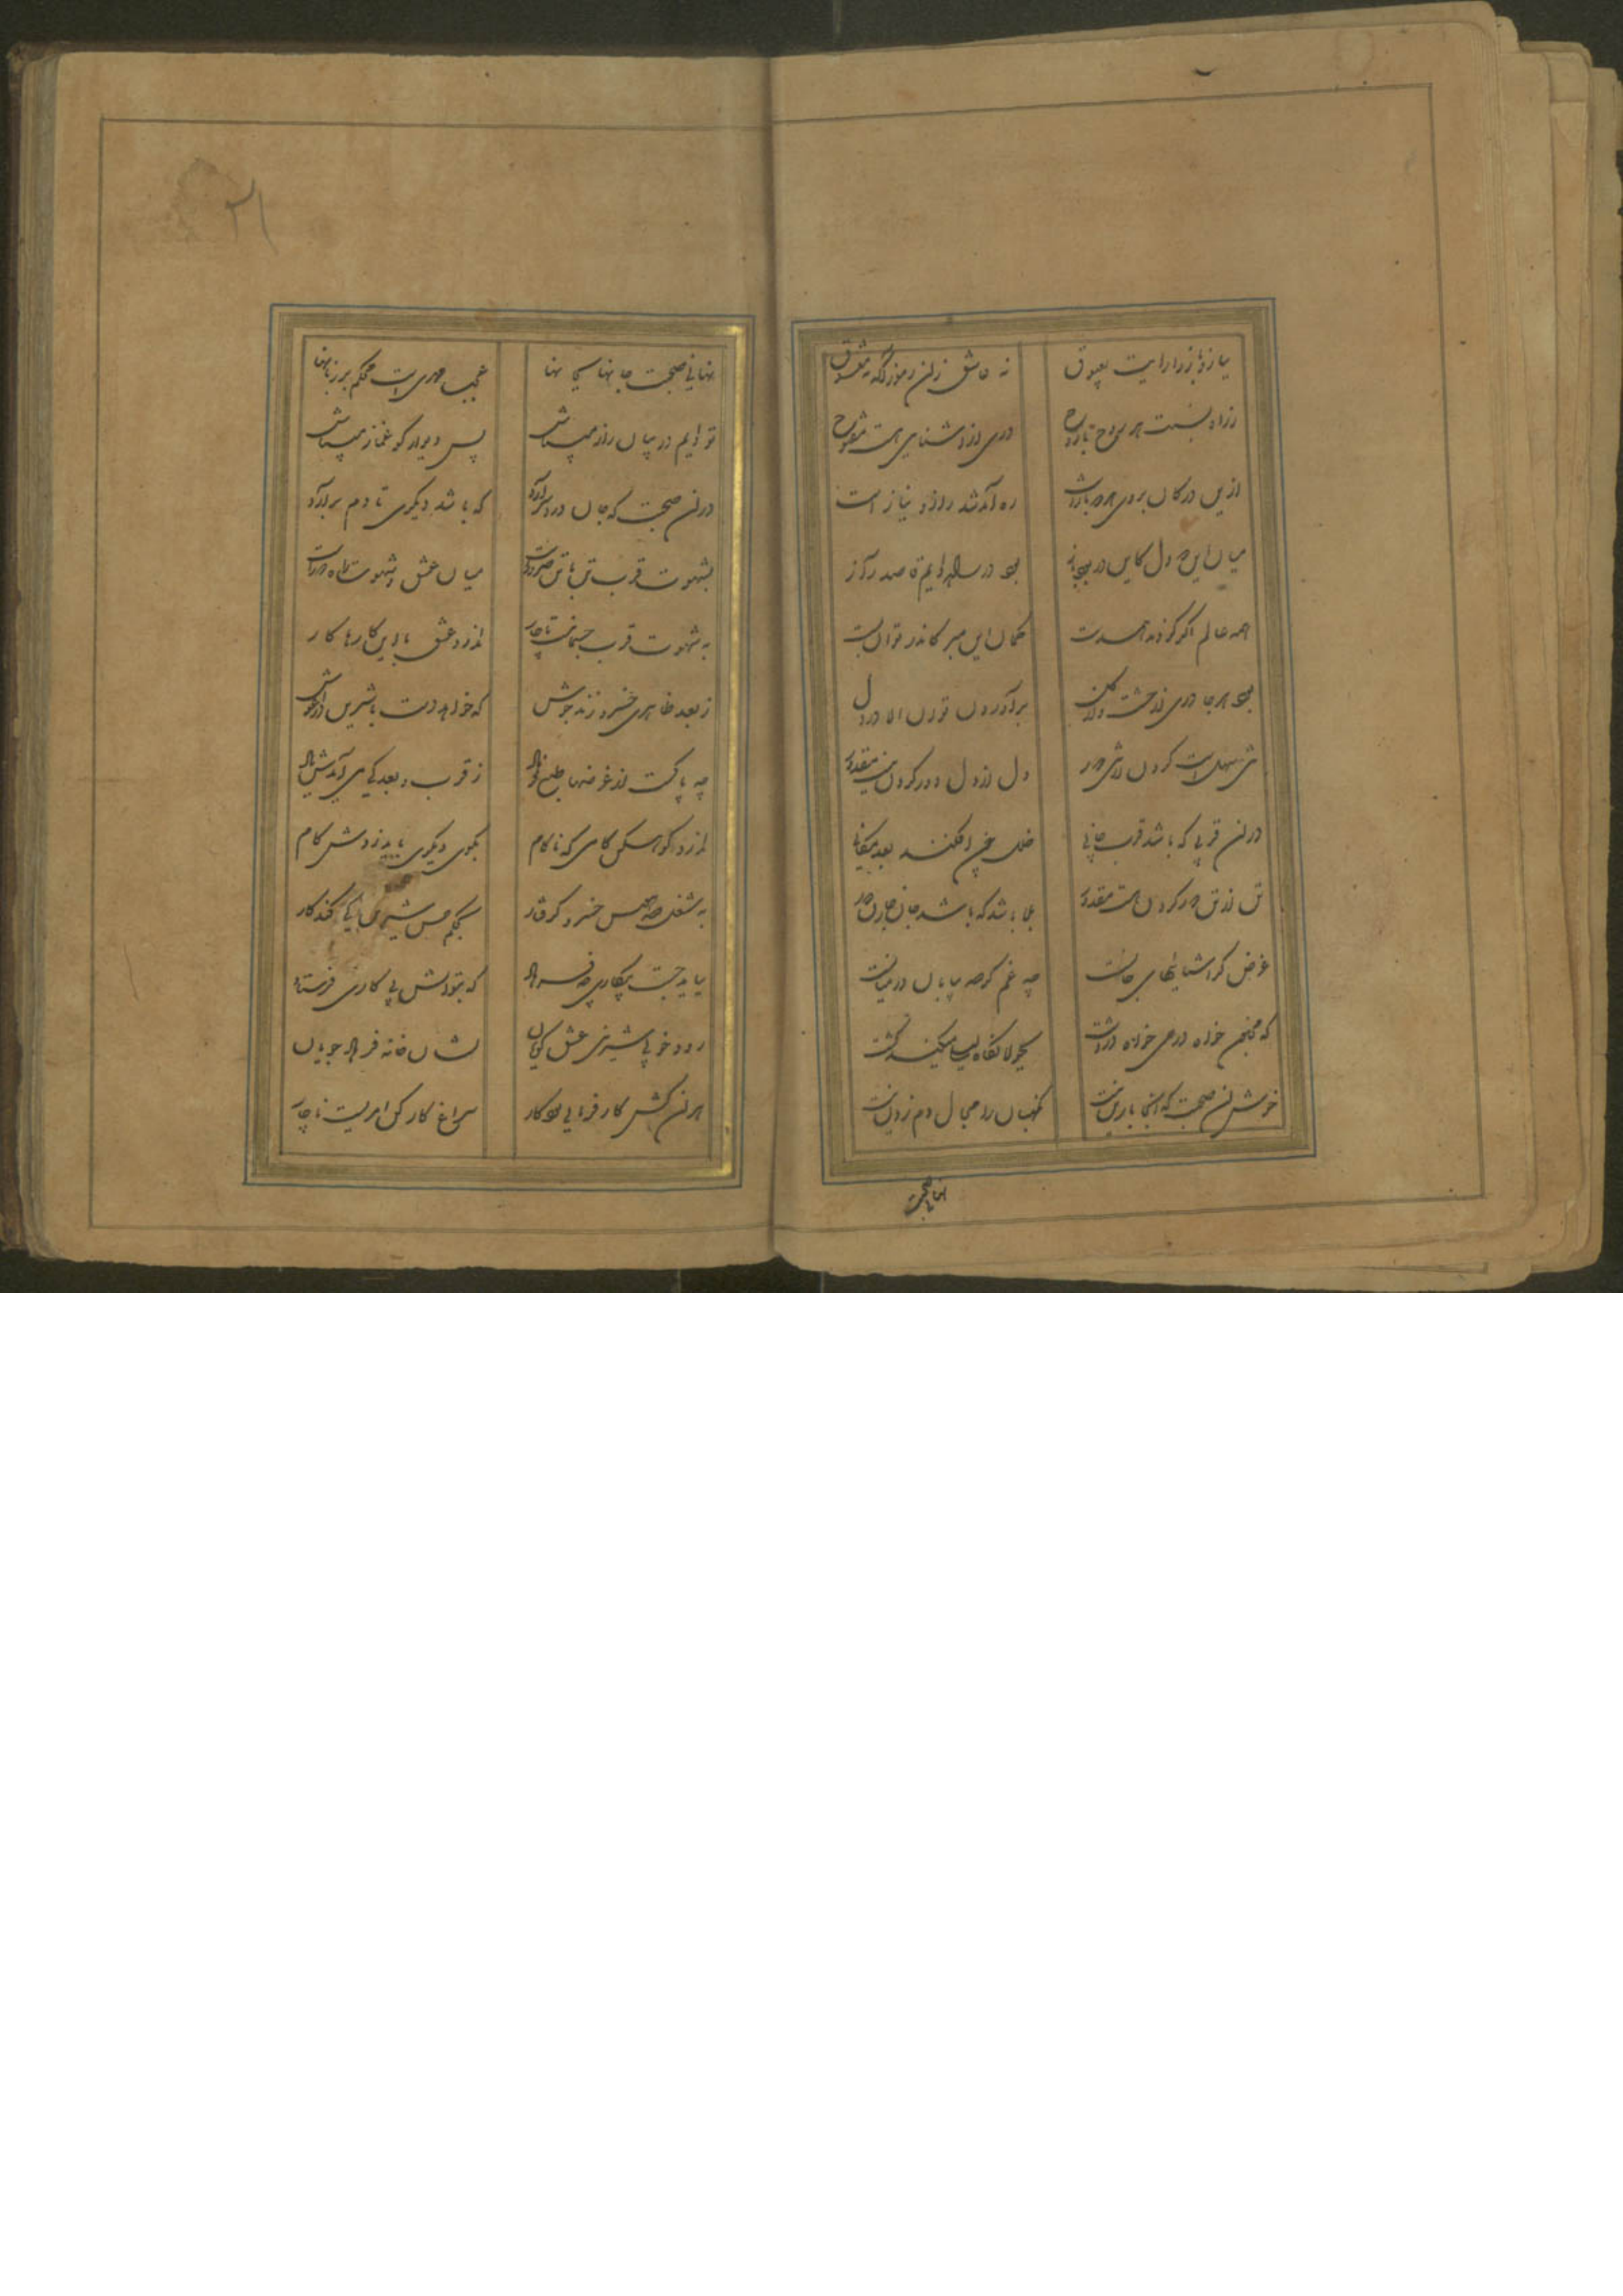 نیاز و ناز را رایت بعیوق
نه عاشق زان رموز آگه نه معشوق
ز راه نسبت هر روح با روح
دری از آشنایی هست مفتوح
ازین در کان بروی هر دو باز است
ره آمد شد ناز و نیاز است
میان این دو دل کاین در بود باز
بود در راه دایم قاصد راز
همه عالم اگر گردند همدست
گمان این مبر کاندر توان بست
بود هر جا دری از خشت و از گل
برآوردن توان الا در دل
تنی سهل است کردن از تنی دور
دل از دل دور کردن نیست مقدور
در ان قربی که باشد قرب جانی
خلل چون افکند بعد مکانی
تن از تن دور کردن هست مقدور
بلا باشد که باشد جان ز جان دور
غرض گر آشنایی های جانست
چه غم گر صد بیابان در میانست
که مجنون خواه در حی خواه در دشت
بجولانگاه لیلی میکند گشت
خوش ان صحبت که آنجا بار تن نیست
نگهبان را مجال دم زدن نیست
نهانی صحبت
۲۱
نهانی صحبت جانها بجانها
عجب مهری است محکم بر زبانها
تو دایم در میان راز میباش
پس دیوار گو غماز میباش
در ان صحبت که جان دردسر آرد
که باشد دیگری تا دم برآرد
بشهوت قرب تن با تن ضرور است
میان عشق و شهوت راه دور است
به شهوت قرب جسمانیست ناچار
ندارد عشق با این کارها کار
ز بعد ظاهری خسرو زند جوش
که خواهد دست با شیرین در آغوش
چه پاکست از غرضها طبع فرهاد
ز قرب و بعد کی می آیدش یاد
ندارد کوهکن کامی که ناکام
بکوی دیگری باید زدش گام
به شغل صد هوس خسرو گرفتار
بحکم حسن شیرین کی کند کار
بباید جست بیکاری چو فرهاد
که بتوانش پی کاری فرستاد
رود خوبی شیرین عشق گویان
نشان خانه فرهاد جویان
هر ان کس کار فرمایی بود کار
سراغ کارکن امریست ناچار